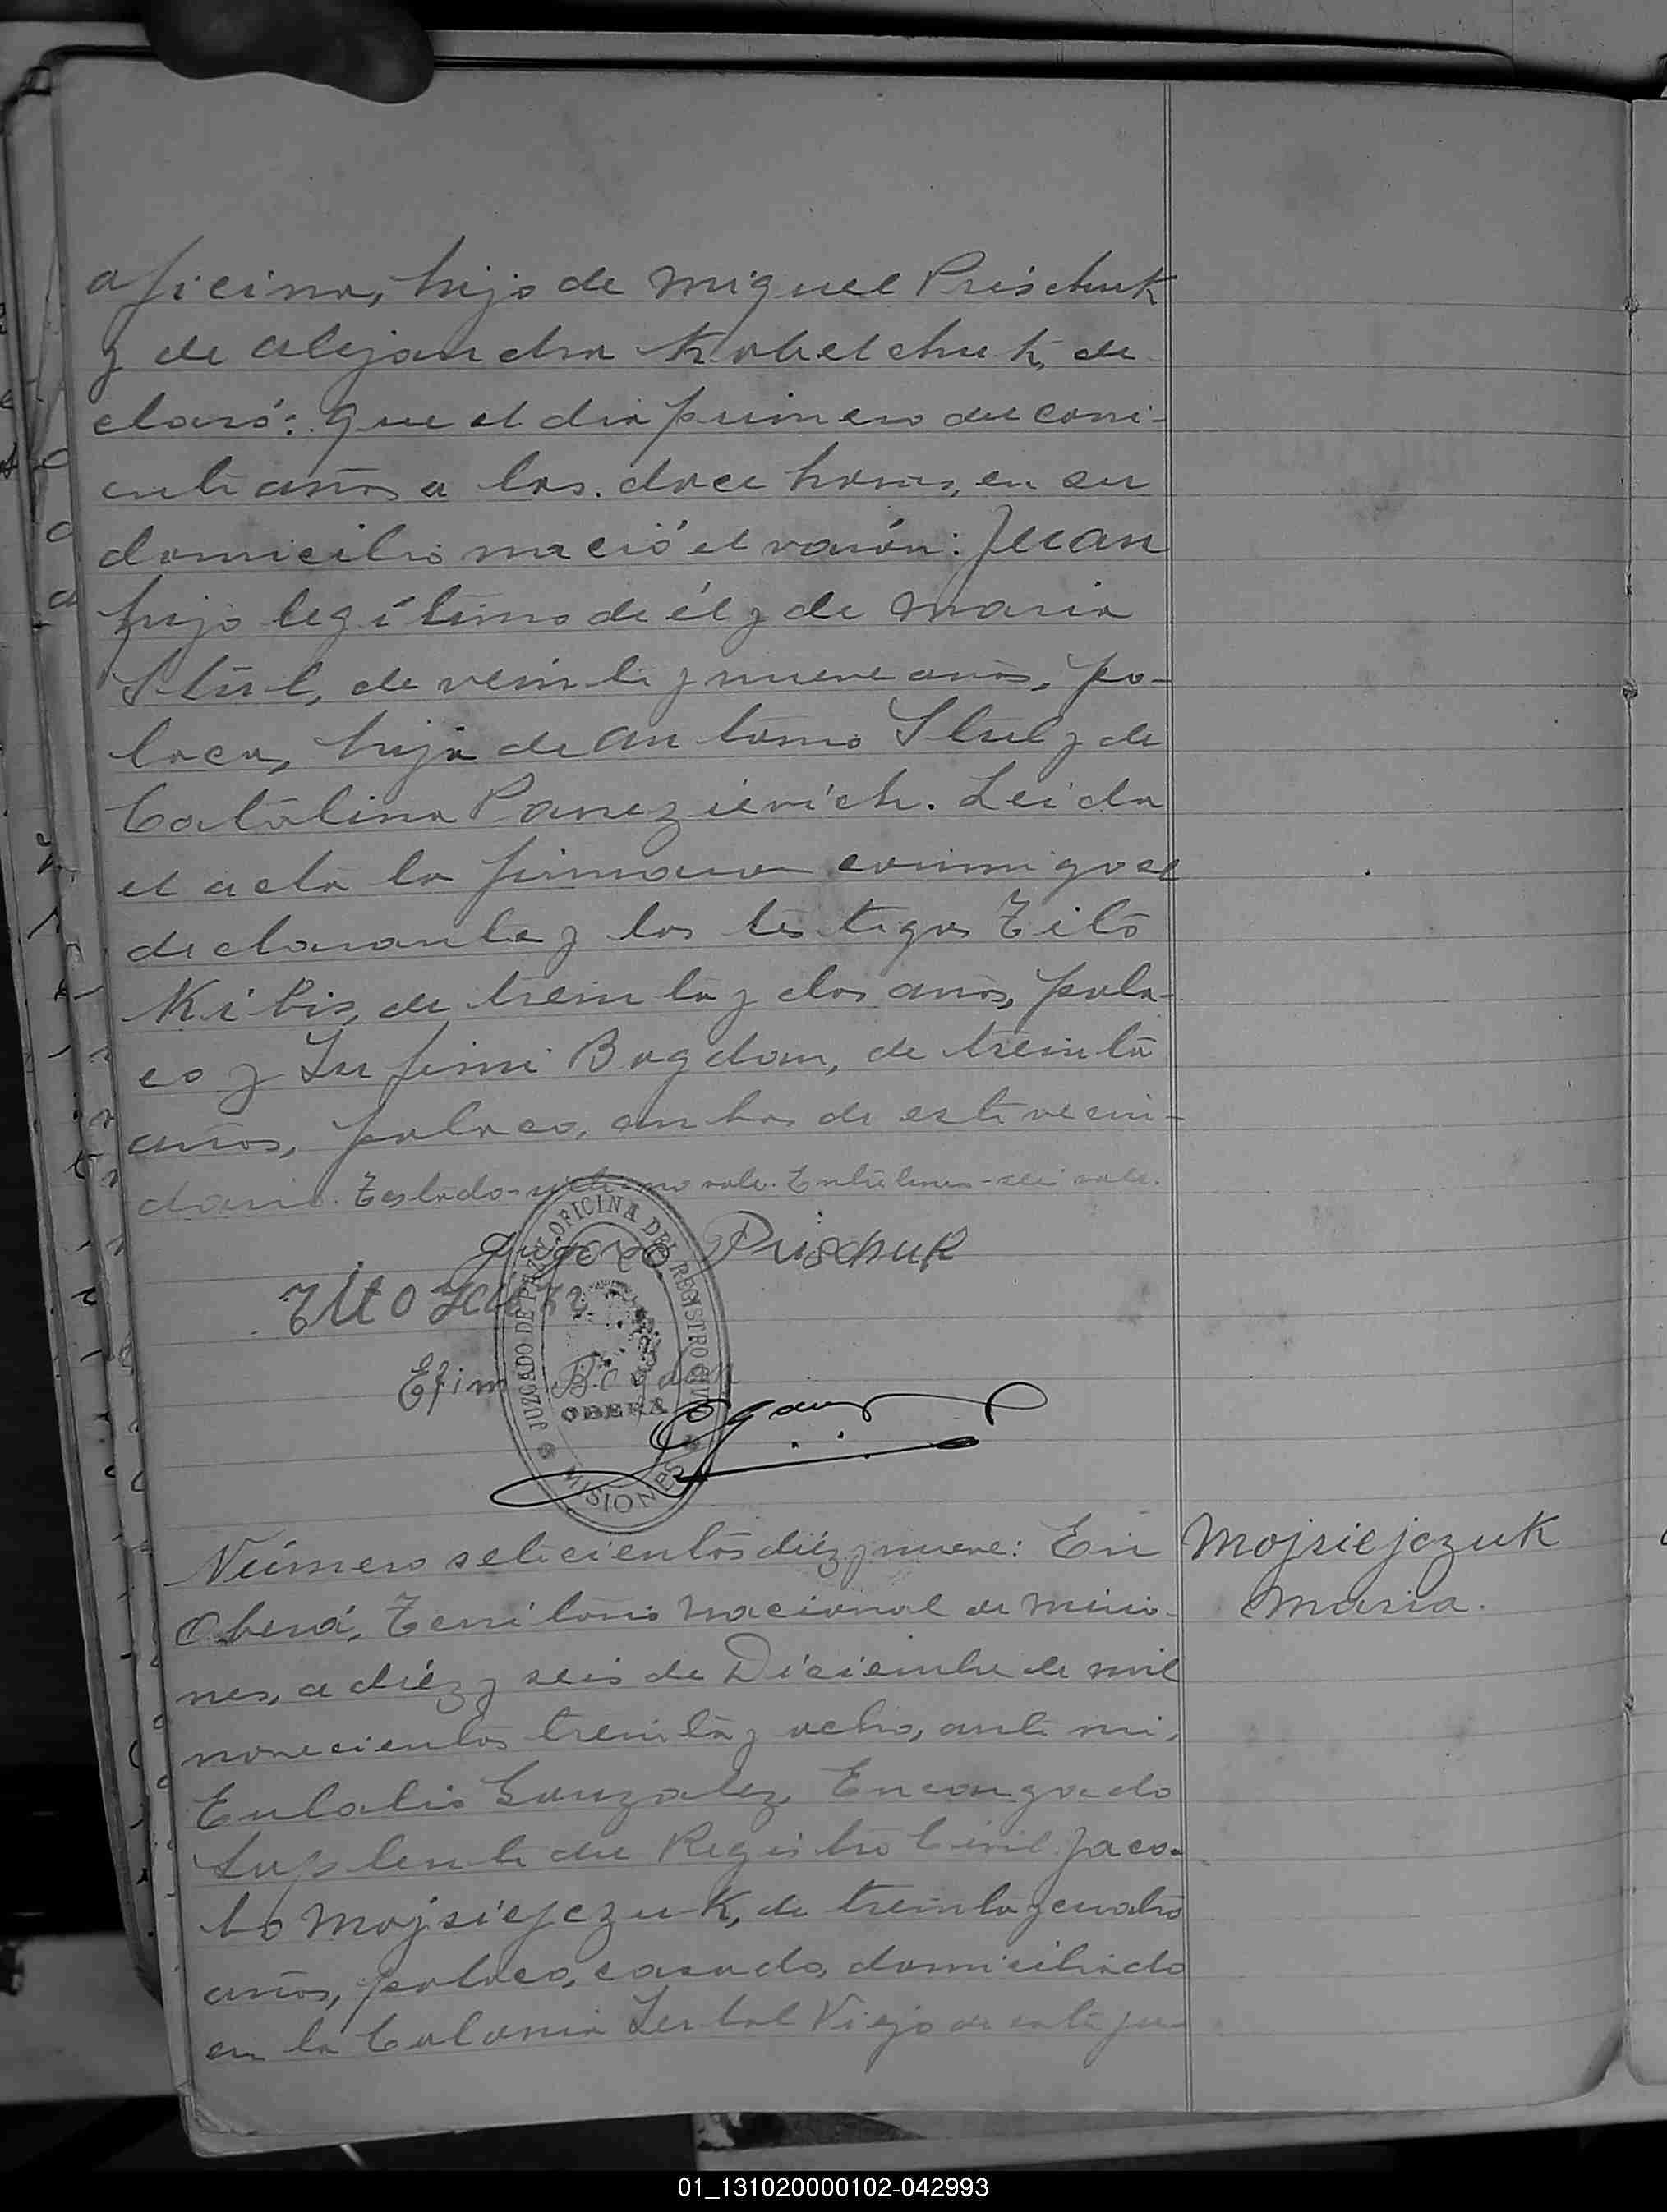 oficina, hijo de Miguel Prischuk
y de Alejandra Kobelchuk, de-
claró: Que el día primero del corri-
ente año a las doce horas, en su
domicilio nació el varón: Juan
hijo legítimo de él y de Maria
Stul, de veinte y nueve años, po-
laca, hija de Antonio Stul y de
Catalina Panezievich. Leida
el acta la firmaron conmigo el
declarante y los testigos Tito
Kibis, de treinta y dos años, pola-
co y Eufimi Bogdan, de treinta
años, polaco, ambos de este vecin-
dario. Testado- no vale. Entrelineas- vale.
Prischuk
Tito
Efim Bogdan
JUZGADO DE PAZ Y OFICINA DEL REGISTRO CIVIL
OBERA
MISIONES
Número setecientos diéz y nueve: En
Mojsiejczuk
Maria.
Oberá, Territorio Nacional de Misio-
nes, a diéz y seis de Diciembre de mil
novecientos treinta y ocho, ante mi,
Eulalio Gonzalez, Encargado
Suplente del Registro Civil Jaco-
bo Mojsiejczuk, de treinta y cuatro
años, polaco, casado, domiciliado
en la Colonia Yerbal Viejo de este ju-
01_131020000102-042993